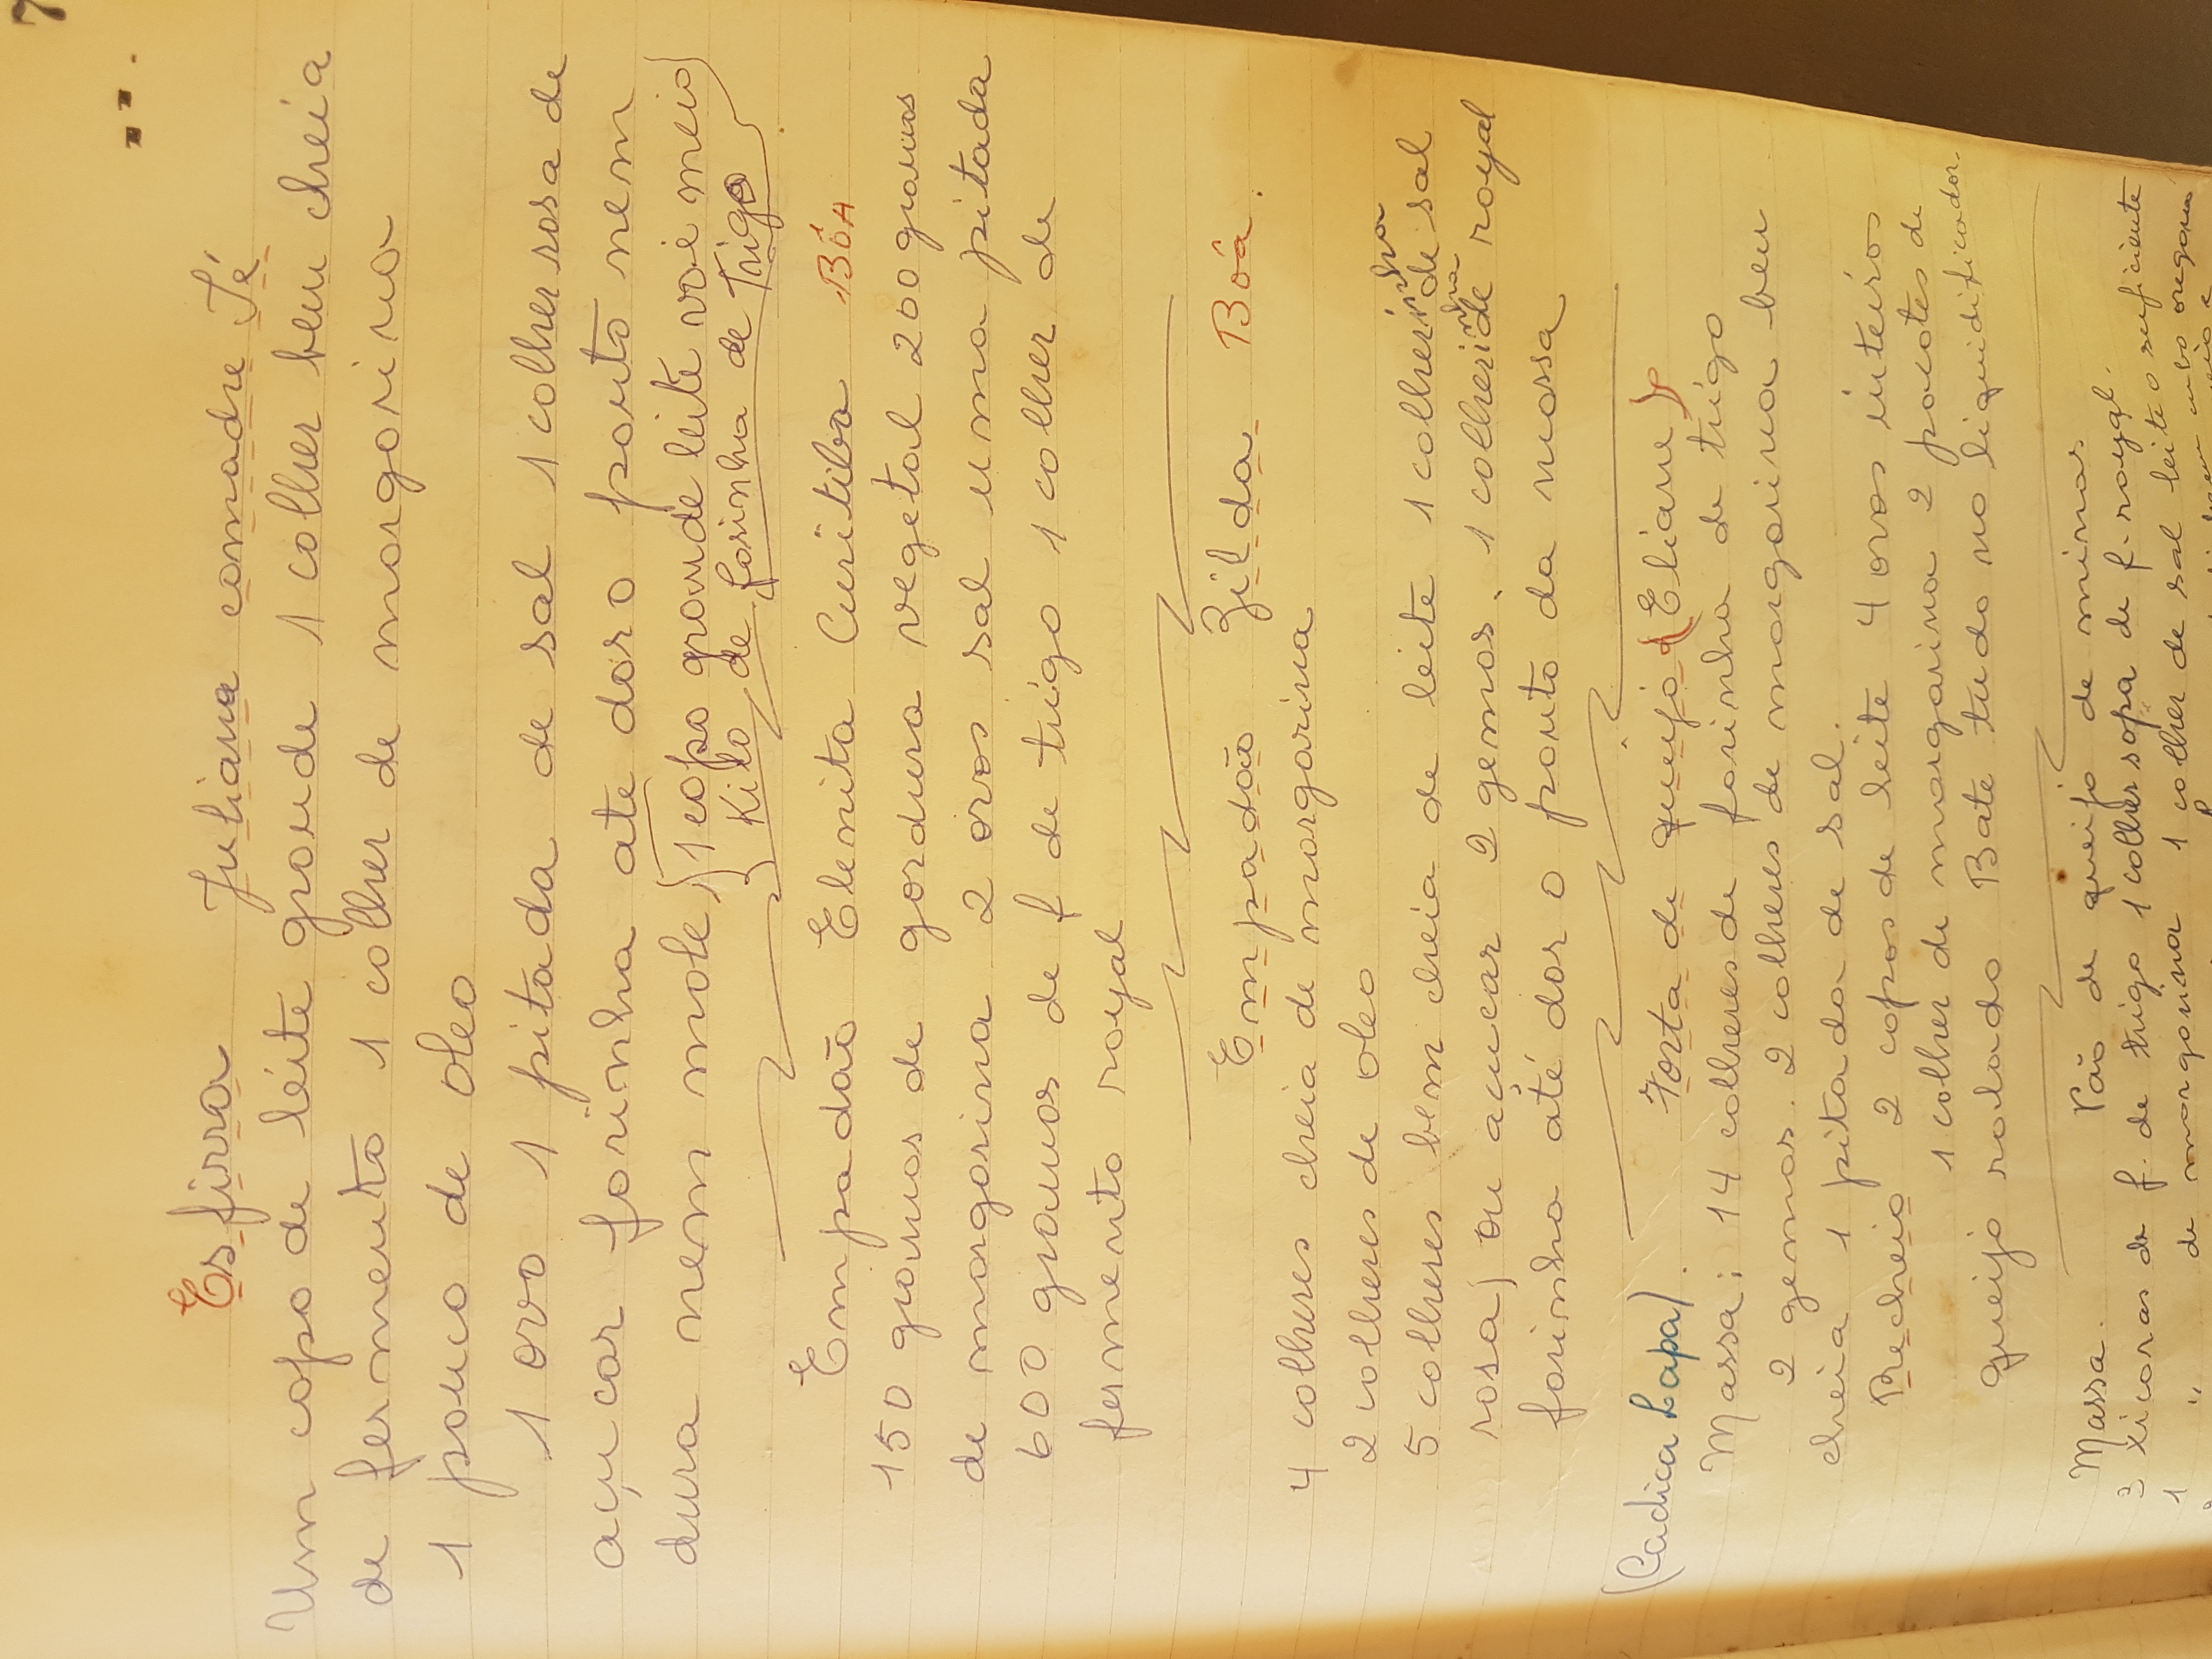 Esfirra Juliana comadre Jé
Um copo de leite grande 1 colher bem cheia
de fermento 1 colher de margarina
1 pouco de oleo
1 ovo 1 pitada de sal 1 colher rosa de
açucar farinha ate dar o ponto nem
dura nem mole (1 copo grande leite vai meio)
Kilo de farinha de Trigo
Empadão Elenita Curitiba Bôa
150 gramas de gordura vegetal 200 gramas
de margarina 2 ovos sal uma pitada
600 gramas de f de trigo 1 colher de
fermento royal
Empadão Zilda Boâ.
4 colheres cheia de margarina
2 colheres de oleo
5 colheres bem cheia de leite 1 colherinha de sal
rosa) ou acucar 2 gemas. 1 colherinha de royal
farinha até dar o ponto da massa
(Cadica Lapa) Torta de queijo (Eliane)
Massa: 14 colheres de farinha de trigo
2 gemas. 2 colheres de margarina bem
cheia 1 pitada de sal.
Recheio 2 copos de leite 4 ovos inteiros
1 colher de margarina 2 pacotes de
queijo ralado Bate tudo no liquidificador.
Pão de queijo de minas
Massa.
3 xicaras de f. de trigo 1 colher sopa de f-royal.
1 " de margarina 1 colher de sal leite o suficiente